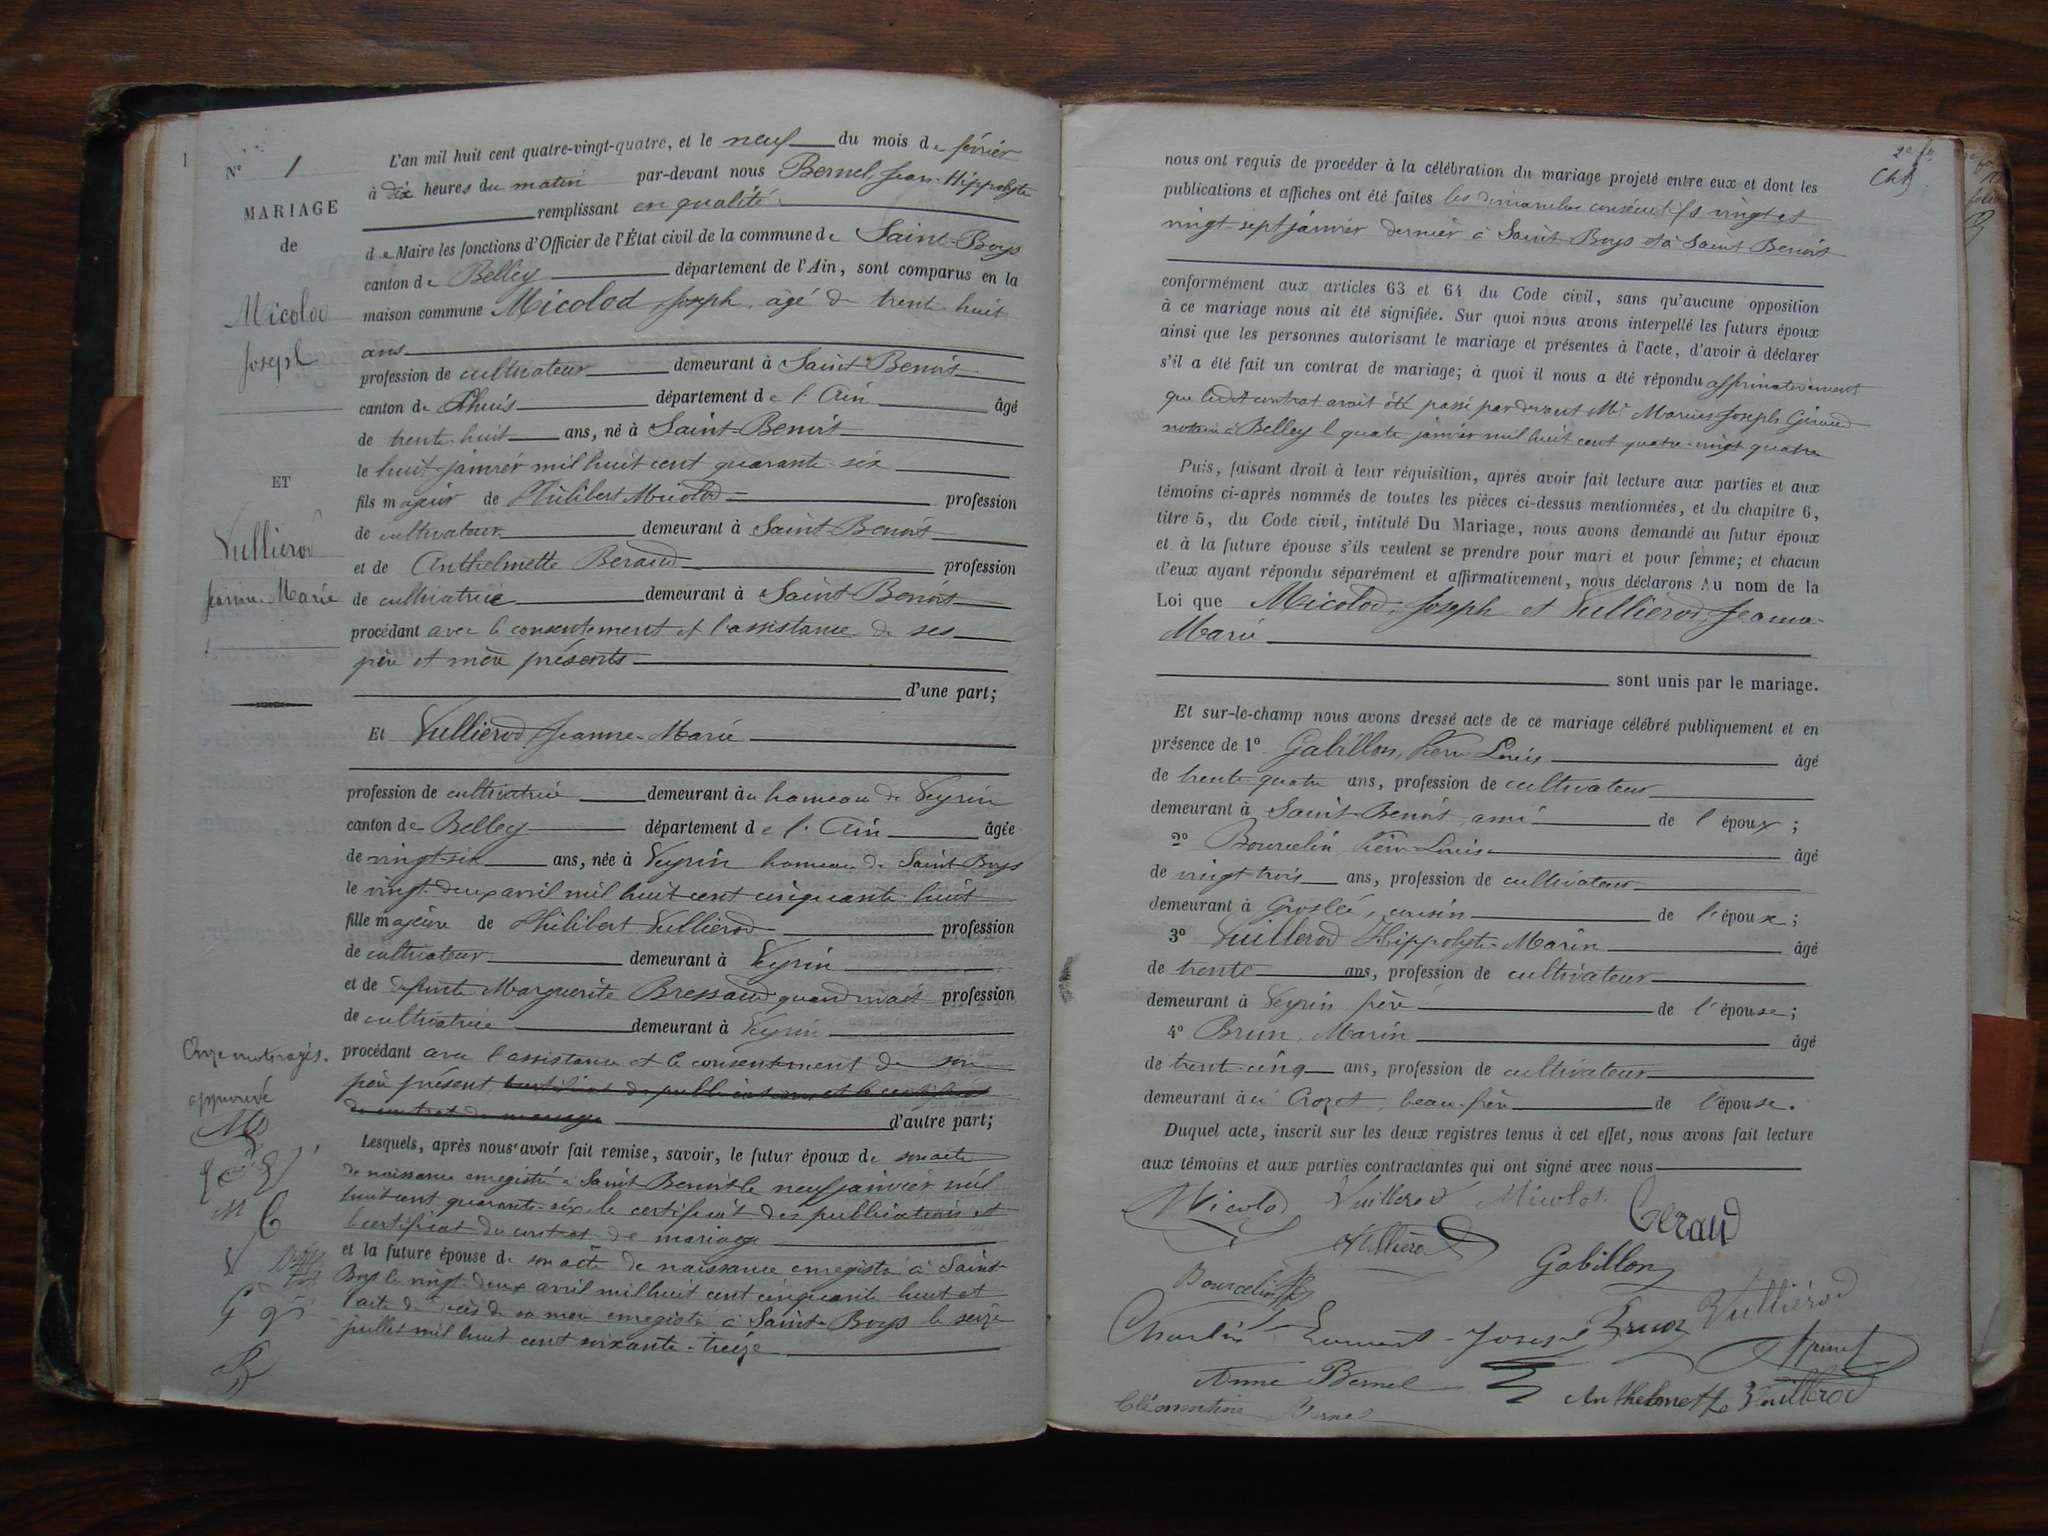 1
N° 1
MARIAGE
de
Micolod
Joseph
ET
Vullierod
Jeanne-Marie
L'an mil huit cent quatre-vingt-quatre, et le neuf du mois de février
à dix heures du matin par-devant nous Bernel, Jean-Hippolyte
remplissant en qualité
de Maire les fonctions d'Officier de l'État civil de la commune de Saint-Boys
canton de Belley département de l'Ain, sont comparus en la
maison commune Micolod Joseph, âgé de trente-huit
ans
profession de cultivateur demeurant à Saint-Benoit
canton de Lhuis département de l'Ain âgé
de trente-huit ans, né à Saint-Benoit
le huit janvier mil huit cent quarante-six
fils majeur de Philibert Micolod profession
de cultivateur demeurant à Saint-Benoit
et de Anthelmette Beraud profession
de cultivatrice demeurant à Saint-Benoit
procédant avec le consentement et l'assistance de ses
père et mère présents
d'une part;
Et Vullierod, Jeanne-Marie
profession de cultivatrice demeurant au hameau de Veyrin
canton de Belley département de l'Ain âgée
de vingt-six ans, née à Veyrin hameau de Saint-Boys
le vingt-deux avril mil huit cent cinquante-huit
fille majeure de Philibert Vullierod profession
de cultivateur demeurant à Veyrin
et de défunte Marguerite Bressaud quand vivait profession
de cultivatrice demeurant à Veyrin
procédant avec l'assistance et le consentement de son
père présent certificat de publications et le certificat
de contrat de mariage d'autre part;
Onze mots rayés.
approuvé
Lesquels, après nous avoir fait remise, savoir, le futur époux de son acte
de naissance enregistré à Saint Benoit le neuf janvier mil
huit cent quarante-six le certificat des publications et
le certificat du contrat de mariage
et la future épouse de son acte de naissance enregistré à Saint
Boys le vingt-deux avril mil huit cent cinquante-huit et
l'acte de décès de sa mère enregistré à Saint-Boys le seize
juillet mil huit cent soixante-treize
nous ont requis de procéder à la célébration du mariage projeté entre eux et dont les
publications et affiches ont été faites les dimanches consécutifs vingt et
vingt-sept janvier dernier à Saint-Boys et à Saint Benoit
conformément aux articles 63 et 64 du Code civil, sans qu'aucune opposition
à ce mariage nous ait été signifiée. Sur quoi nous avons interpellé les futurs époux
ainsi que les personnes autorisant le mariage et présentes à l'acte, d'avoir à déclarer
s'il a été fait un contrat de mariage; à quoi il nous a été répondu affirmativement
que ledit contrat avait été passé par devant Me Marius Joseph Géraud
notaire à Belley le quatre janvier mil huit cent quatre-vingt quatre
Puis, faisant droit à leur réquisition, après avoir fait lecture aux parties et aux
témoins ci-après nommés de toutes les pièces ci-dessus mentionnées, et du chapitre 6,
titre 5, du Code civil, intitulé Du Mariage, nous avons demandé au futur époux
et à la future épouse s'ils veulent se prendre pour mari et pour femme; et chacun
d'eux ayant répondu séparément et affirmativement, nous déclarons Au nom de la
Loi que Micolod, Joseph et Vullierod, Jeanne-
Marie
sont unis par le mariage.
Et sur-le-champ nous avons dressé acte de ce mariage célébré publiquement et en
présence de 1° Gabillon, Pierre Louis âgé
de trente-quatre ans, profession de cultivateur
demeurant à Saint-Benoit, ami de l'époux;
2° Bourcelin, Pierre Louis âgé
de vingt-trois ans, profession de cultivateur
demeurant à Groslée, cousin de l'époux;
3° Vuillerod Hippolyte-Marin âgé
de trente ans, profession de cultivateur
demeurant à Veyrin frère de l'épouse;
4° Brun, Marin âgé
de trente-cinq ans, profession de cultivateur
demeurant à Crozet, beau-frère de l'épouse.
Duquel acte, inscrit sur les deux registres tenus à cet effet, nous avons fait lecture
aux témoins et aux parties contractantes qui ont signé avec nous
Micolod Vuillerod Micolod Geraud
Vulliérod Gabillon
Bourcelin Vulliérod
Charlin Joseph Brun
Anne Bernel Anthelmette Vuillerod
Clémentine Bernel